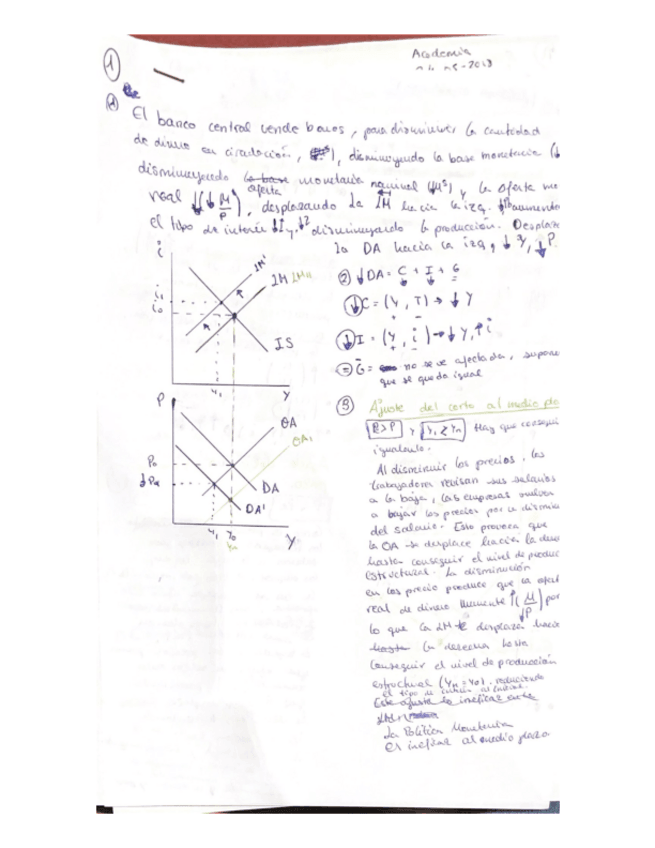 Academia
1
El banco central vende bonos, para disminuir la cantidad
de dinero en circulación, disminuyendo la base monetaria (↓
disminuyendo la base oferta monetaria nominal (↓Mˢ) y la oferta mo
real (↓↓ M/P), desplazando la LM hacia la izq. aumenta
el tipo de interés ↓I y ↓Z disminuyendo la producción. Desplaza
la DA hacia la izq, ↓Y, ↓P.
i
LM'
LM LMn
i₁
i₀
IS
Y₁
Y
② ↓DA = C + I + G
↓C = (Y, T) → ↓Y
+ -
↓I = (Y, i) → ↓Y, ↑i
+ -
G = no se ve afectada, supone
que se queda igual
P
OA
OA₁
P₀
↓P₁
DA
DA'
Y₁ Y₀
Yn
Y
③ Ajuste del corto al medio pla
Hay que consegui
igualarlo.
Al disminuir los precios, los
trabajadores revisan sus salarios
a la baja, las empresas vuelven
a bajar los precios por la disminu
del salario. Esto provoca que
la OA se desplace hacia la dere
hasta conseguir el nivel de produc
estructural. La disminución
en los precio produce que la ofert
real de dinero aumente ↑(M/↓P) por
lo que la LM se desplaza hacia
hasta la derecha hasta
conseguir el nivel de producción
estructural (Yn = Y0), reduciendo
el tipo de interés al inicial.
Este ajuste lo ineficaz
La Política Monetaria
es ineficaz al medio plazo